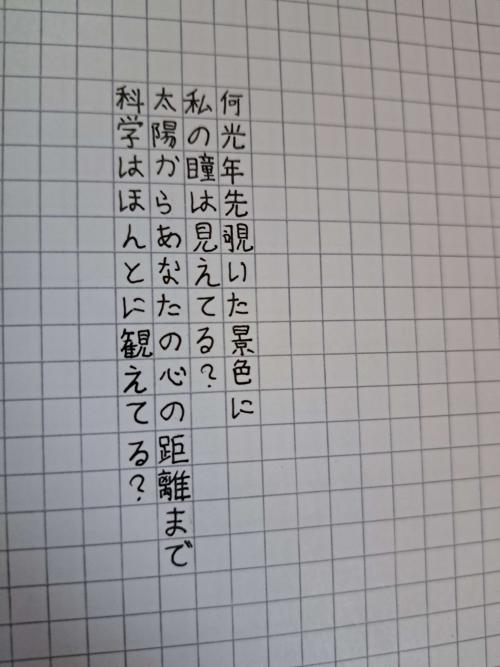 何光年先覗いた景色に
私の瞳は見えてる?
太陽からあなたの心の距離まで
科学はほんとに観えてる?